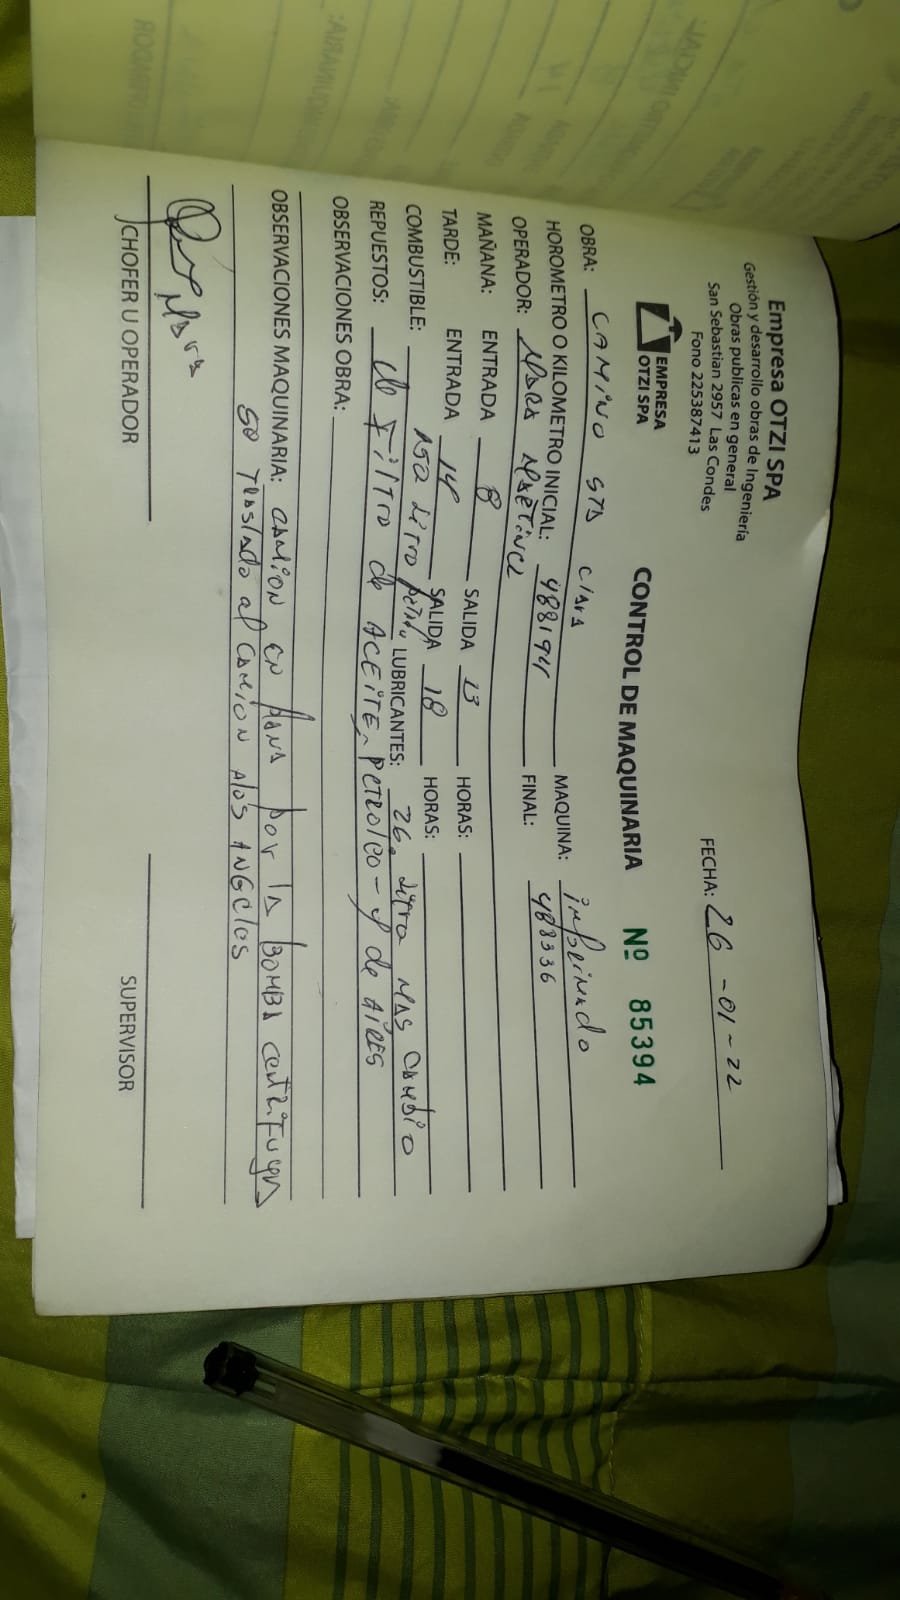 Empresa OTZI SPA
Gestión y desarrollo obras de Ingeniería
Obras publicas en general
San Sebastian 2957 Las Condes
Fono 225387413
EMPRESA
OTZI SPA
FECHA: 26-01-22
CONTROL DE MAQUINARIA Nº 85394
OBRA: CAMINO STA Clara MAQUINA: imprimado
HOROMETRO O KILOMETRO INICIAL: 488194 FINAL: 488336
OPERADOR: MARA
MAÑANA: ENTRADA 8 SALIDA 13 HORAS:
TARDE: ENTRADA 14 SALIDA 18 HORAS:
COMBUSTIBLE: 150 Litro LUBRICANTES: 26. Litro MAS CAMBIO
REPUESTOS: de FilTro de ACEITE, PETROLEO - y de AIRES
OBSERVACIONES OBRA:
OBSERVACIONES MAQUINARIA: CAMION EN PANA POR LA BOMBA CENTRIFUGA
se TRASLADO al CAMION A los ANGELES
MARA
CHOFER U OPERADOR
SUPERVISOR